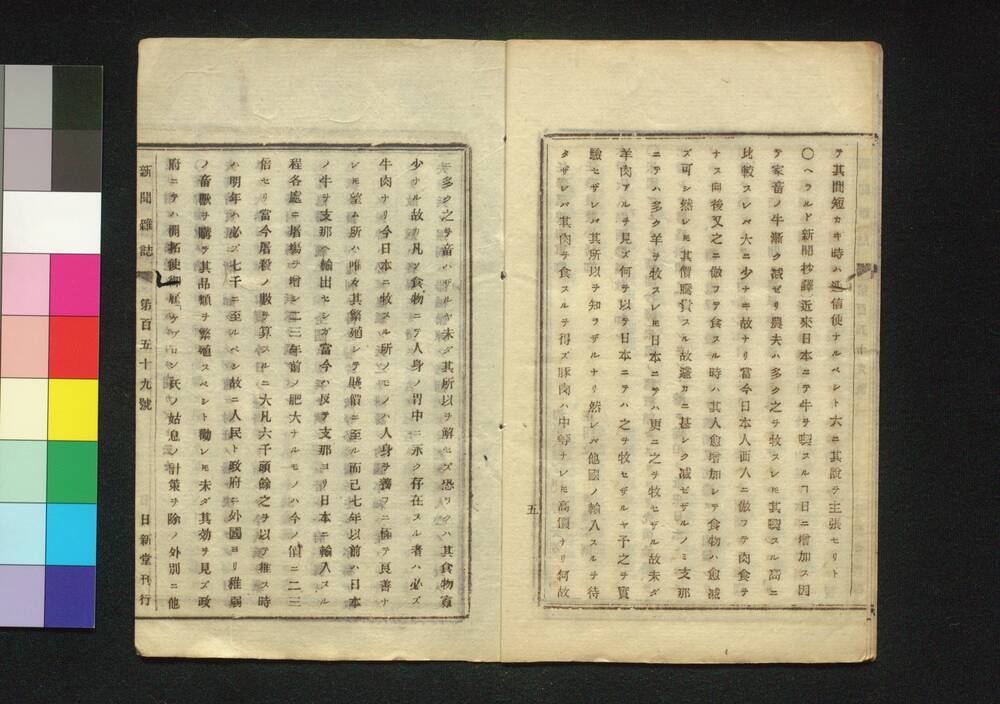 テ其間短カキ時ハ通信使ナルベシト大ニ其說ヲ主張セリト
〇ヘラルド新聞抄譯近來日本ニテ牛ヲ喫スルヿ日ニ增加ス因
テ家畜ノ牛漸ク減ゼリ農夫ハ多ク之ヲ牧スレ𪜈其喫スル高ニ
比較スレバ大ニ少ナキ故ナリ當今日本人西人ニ倣フテ肉食ヲ
ナス向後又之ニ倣フテ食スル時ハ其人愈增加シテ食物ハ愈減
ズ可シ然レ𪜈其價騰貴スル故遽カニ甚シク減ゼザルノミ支那
ニテハ多ク羊ヲ牧スレ𪜈日本ニテハ更ニ之ヲ牧セザル故未ダ
羊肉アルヲ見ズ何ヲ以テ日本ニテハ之ヲ牧セザルヤ予之ヲ實
驗セザレバ其所以ヲ知ラザルナリ然レバ他國ノ輸入スルヲ待
タザレバ其肉ヲ食スルヲ得ズ豚肉ハ中等ナレ𪜈高價ナリ何故
五
多ク之ヲ畜ハザルヤ未ダ其所以ヲ解セズ恐ラクハ其食物寡
少ナル故カ凡ソ食物ニテ人身ノ胃中ニ永ク存在スル者ハ必ズ
牛肉ナリ今日本ニ牧スル所ノモノハ人身ヲ養フニ極テ良善ナ
レ𪜈望ム所ハ唯々其繁殖シテ賤價ニ至ル而己七年以前ハ日本
ノ牛ヲ支那ヘ輸出セシガ當今ハ反テ支那ヨリ日本ニ輸入スル
程各處ニ屠場ヲ增シ二三年前ノ肥大ナルモノハ今ノ價ニ二三
倍セリ當今屠殺ノ數ヲ算スルニ大凡六千頭餘之ヲ以テ推ス時
ハ明年ハ必ズ七千ニ至ルベシ故ニ人民ト政府ニ外國ヨリ稚弱
ノ畜獸ヲ購ヲ其品類ヲ繁殖スベシト勸レ𪜈未ダ其効ヲ見ズ政
府ニテハ開拓使御雇ケプロン氏ノ姑息ノ計策ヲ除ノ外別ニ他
新聞雜誌 第百五十九號 日新堂刊行